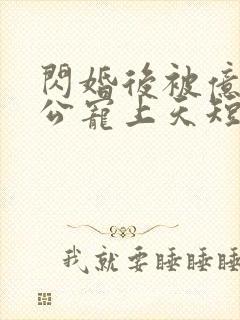 閃婚後被億
公寵上天短
我就要睡睡睡